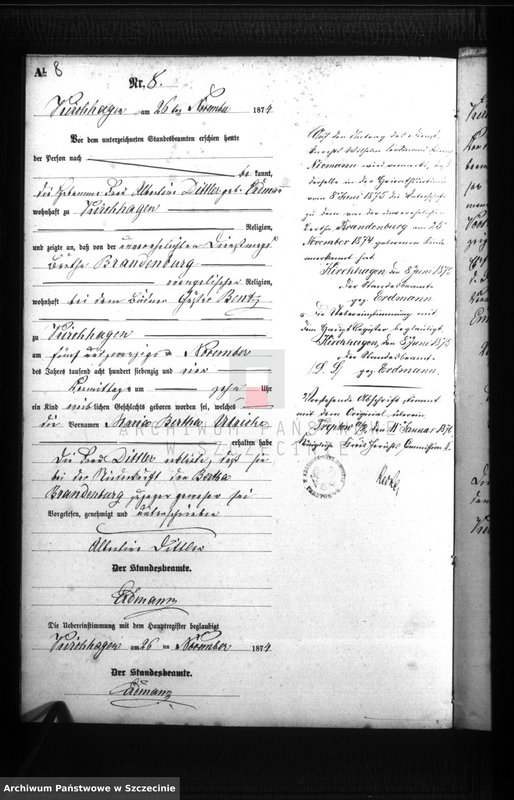 A. 8
Nr. 8.
Kirchhagen am 26 ten November 1874
Vor dem unterzeichneten Standesbeamten erschien heute
der Person nach
be kannt,
die Hebamme Frau Albertine Dittler geb.
wohnhaft zu Kirchhagen
Religion,
und zeigte an, daß von der unverehelichten Dienstmagd
Bertha Brandenburg
evangelischer Religion,
wohnhaft bei dem Büdner Bentz
zu Kirchhagen
am fünf und zwanzigsten November
des Jahres tausend acht hundert siebenzig und vier
Vormittags um zehn Uhr
ein Kind weiblichen Geschlechts geboren worden sei, welches
die Vornamen Maria Bertha Ulricke
erhalten habe
Die Frau Dittler erklärte, daß sie
bei der Niederkunft der Bertha
Brandenburg zugegen gewesen sei
Vorgelesen, genehmigt und unterschrieben
Albertine Dittler
Der Standesbeamte.
Erdmann
Die Uebereinstimmung mit dem Hauptregister beglaubigt
Kirchhagen am 26 ten November 1874
Der Standesbeamte.
Erdmann
Auf den Antrag des Dienst
knechts Wilhelm Ferdinand
Niemann wird vermerkt, daß
derselbe in der
vom 8 Juni 1875 die Vaterschaft
zu dem von der unverehelichten
Bertha Brandenburg am 25
November 1874 geborenen Kinde
anerkannt hat.
Kirchhagen, den 8 Juni 1875
der Standesbeamte
gez. Erdmann
Die Uebereinstimmung mit
dem Haupt Register beglaubigt
Kirchhagen, den 8 Juni 1875
der Standesbeamte
(L. S.) gez. Erdmann.
Vorstehende Abschrift stimmt
mit dem Original überein
Treptow a/R, den 11 Januar 1876
Königliche Kreis Gerichts Commission
ARCHIWUM PAŃSTWOWE
SZCZECINIE
Archiwum Państwowe w Szczecinie